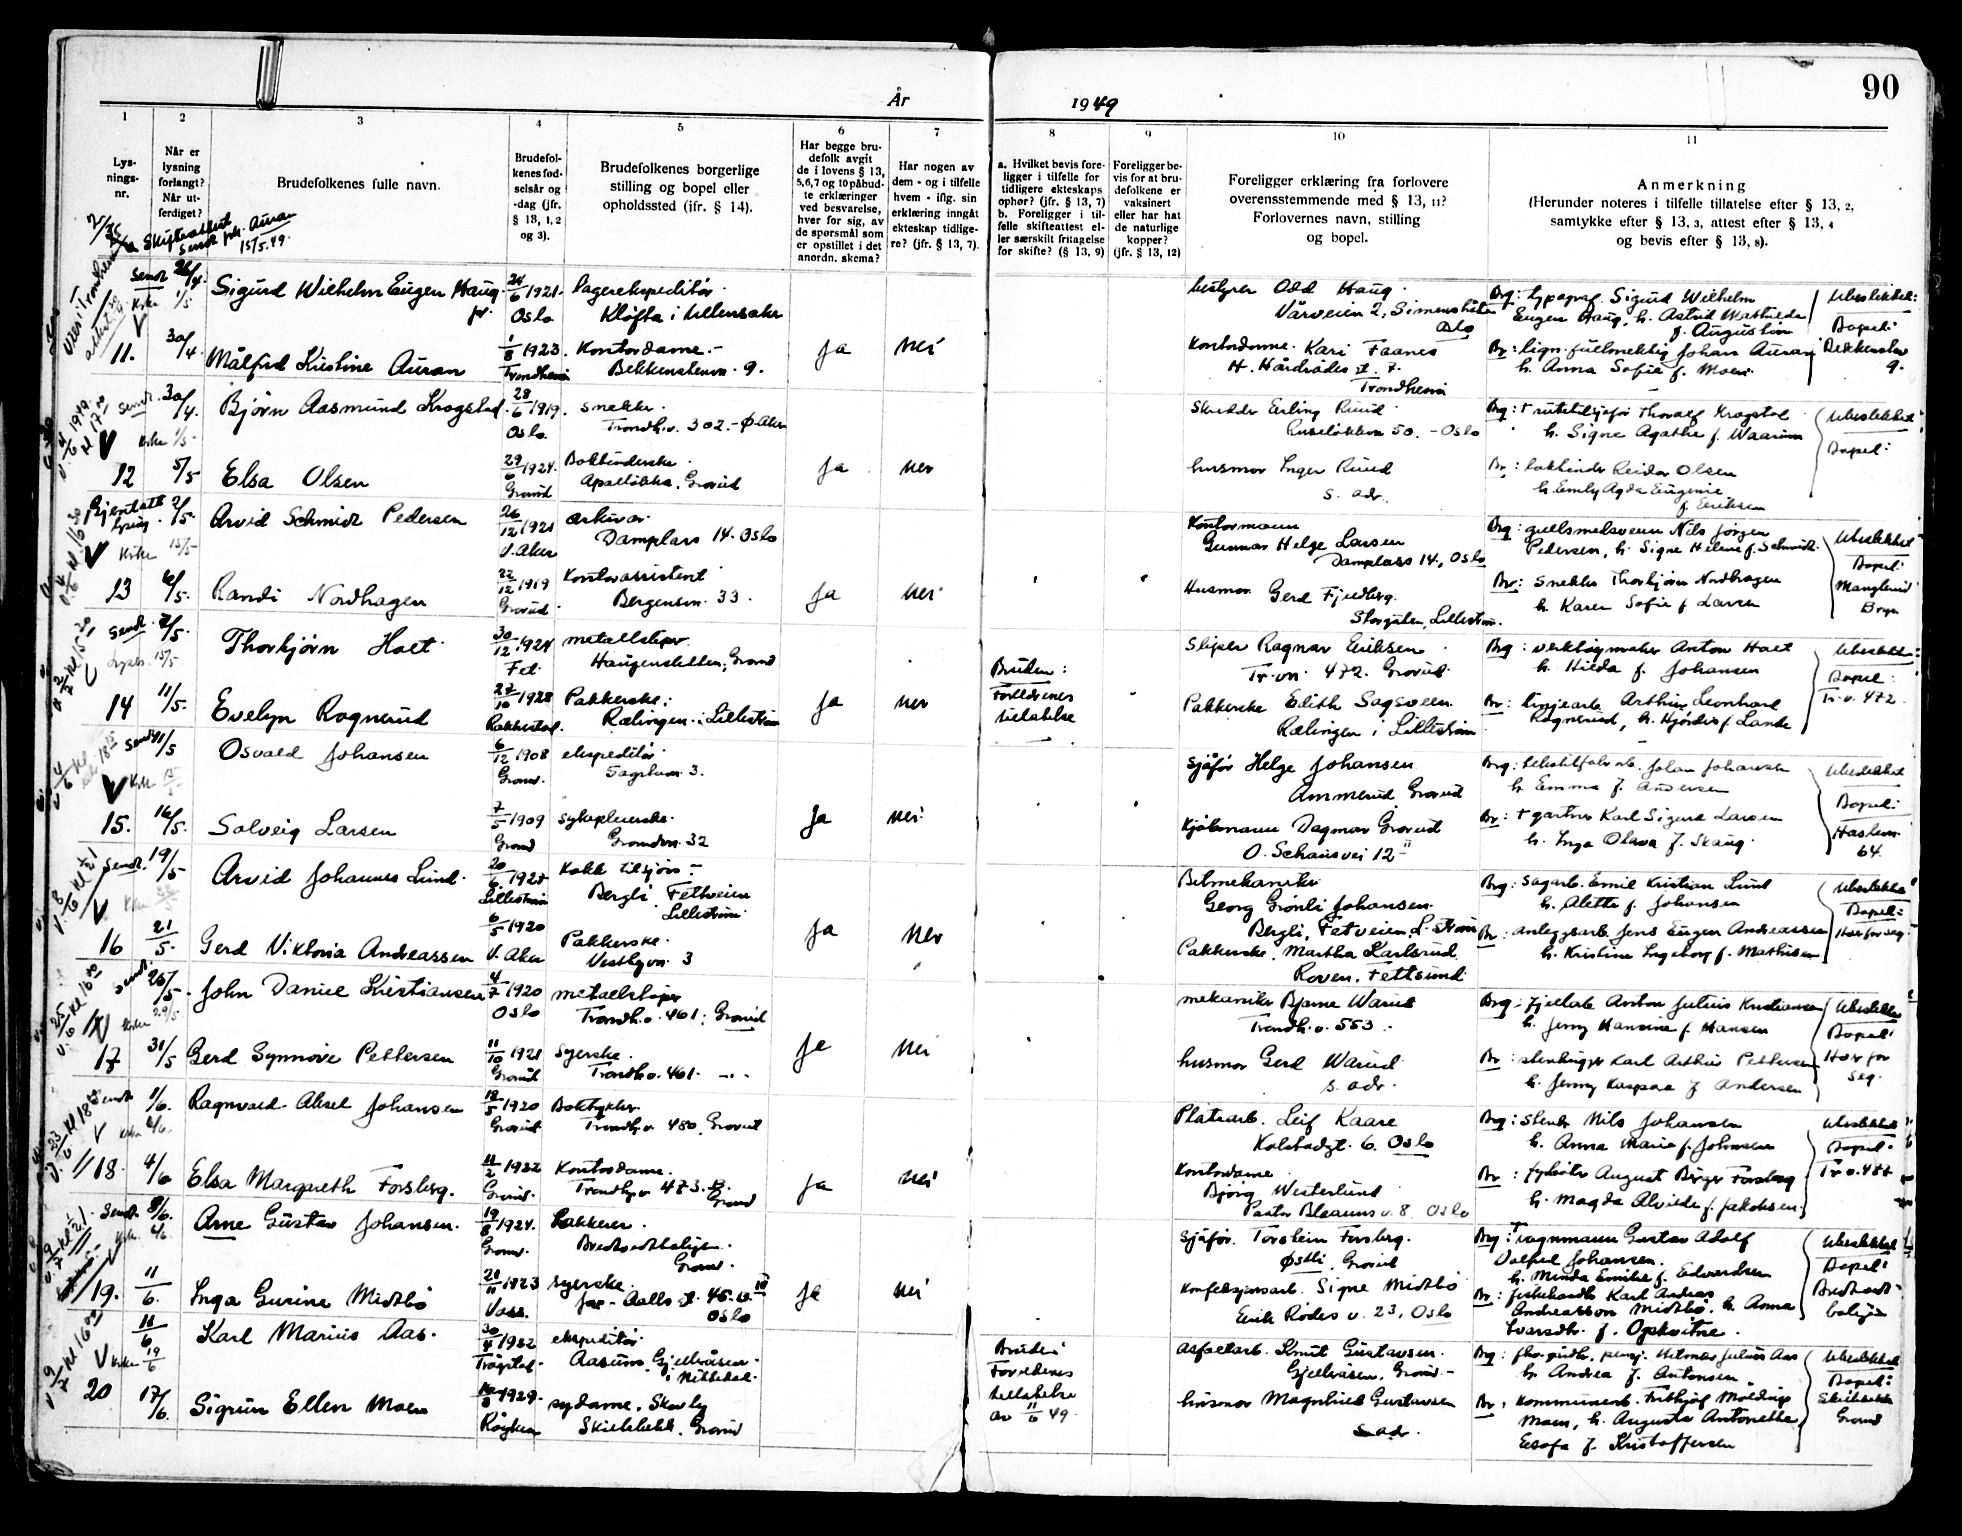 90
År
1949
1
2
3
4
5
6
7
8
9
10
11
Lys-
nings-
nr.
Når er
lysning
forlangt?
Når ut-
ferdiget?
Brudefolkenes fulle navn.
Brudefol-
kenes fød-
selsår og
-dag (jfr.
§ 13, 1, 2
og 3).
Brudefolkenes borgerlige
stilling og bopel eller
opholdssted (ifr. § 14).
Har begge bru-
defolk avgit
de i lovens § 13,
5,6,7 og 10 påbud-
te erklæringer
ved besvarelse,
hver for sig, av
de spørsmål som
er opstillet i det
anordn. skema?
Har nogen av
dem - og i tilfelle
hvem - iflg. sin
erklæring inngått
ekteskap tidlige-
re? (jfr. § 13, 7).
a. Hvilket bevis fore-
ligger i tilfelle for
tidligere ekteskaps
ophør? (jfr. § 13, 7)
b. Foreligger i til-
felle skifteattest el-
ler særskilt fritagelse
for skifte? (§ 13, 9)
Foreligger be-
vis for at bru-
defolkene er
vaksinert
eller har hat
de naturlige
kopper?
(jfr. § 13, 12)
Foreligger erklæring fra forlovere
overensstemmende med § 13, 11?
Forlovernes navn, stilling
og bopel.
Anmerkning
(Herunder noteres i tilfelle tillatelse efter § 13, 2,
samtykke efter § 13, 3, attest efter § 13, 4
og bevis efter § 13, 8).
Skifteattest
sendt prk. Auran
15/5.49.
Sendt 26/4
Sigurd Wilhelm Eugen Haug
jr.
24/6 1921
Oslo
Lagerekspeditør
Kløfta i Ullensaker
Odd Haug
Vårveien 2, Simensbråten
Oslo
Brg: typograf Sigurd Wilhelm
Eugen Haug, h. Astrid Mathilde
f. Augustin
Ubeslektet:
Bopel:
11.
30/4
Målfrid Kirstine Auran
1/8 1923
Trondheim
Kontordame
Bekkenstenvn. 9.
Ja
nei
Kontordame Kari Faanes
H. Hårdrådes gt. 7.
Trondheim
Br: lign.fullmektig Johan Auran
h. Anna Sofie f. Moen
9.
Sendt 30/4.
Bjørn Aasmund Krogstad
28/6 1919
Oslo
snekker
Trondh.v. 302. - Ø. Aker
Skredder Erling Ruud
Ruseløkkvn 50. - Oslo
Brg: † rutebilsjåfør Thoralf Krogstad
h. Signe Agathe f. Waarum
Ubeslektet
Bopel:
12
5/5
Elsa Olsen
29/6 1924
Grorud
Bokbinderske
Apalløkka, Grorud
Ja
nei
husmor Inger Ruud
s. adr.
Br: bokbinder Reidar Olsen
h. Emly Agda Eugenie
f. Eriksen
2/5.
Arvid Schmidt Pedersen
26/12 1921
V. Aker
arkivar
Damplass 14. Oslo
Kontormann
Gunnar Helge Larsen
Damplass 14, Oslo
Brg: gullsmedsvenn Nils Jørgen
Pedersen, h. Signe Helene f. Schmidt
Ubeslektet
Bopel:
Manglerud
Bryn
13
6/5.
Randi Nordhagen
22/12 1919
Grorud
Kontorassistent
Bergensvn. 33.
Ja
nei
Husmor Gerd Fjeldberg
Storgaten, Lillestrøm.
Br: Snekker Thorbjørn Nordhagen
h. Karen Sofie f. Larsen
Sendt 7/5.
Thorbjørn Holt
30/12 1924
Fet
metallsliper
Haugenstellen, Grorud
Bruden:
Foreldrenes
tillatelse
Sliper Ragnar Eriksen
Tr.vn. 472. Grorud.
Brg: verktøymaker Anton Holt
h. Hilda f. Johansen
Bopel:
Tr.v. 472
14
11/5.
Evelyn Ragnerud
27/10 1928
Rakkestad
Pakkerske
Rælingen i Lillestrøm
Ja
nei
Pakkerske Edith Sagsveen
Rælingen i Lillestrøm
Br: linjearb. Arthur Leonhard
Ragnerud, h. Hjørdis f. Lande
Sendt 11/5
Osvald Johansen
6/12 1908
Grorud
ekspeditør
3.
Sjåfør Helge Johansen
Ammerud Grorud
Brg: tekstilfabr.arb. Johan Johansen
h. Emma f. Andersen
Ubeslektet
Bopel:
64
15.
16/5.
Solveig Larsen
7/5 1909
Grorud
sykepleierske
Grorudvn. 32
Ja
nei
Kjøkmann Dagmar Grorud
O. Schousvei 12 II
Br: † gartner Karl Sigurd Larsen
h. Inga Olava f. Skaug
Sendt 19/5
Arvid Johannes Lund
Lillestrøm
Kokk tilsjøs
Bergli, Fetveien
Lillestrøm
Bilmekaniker
Georg Grønli Johansen
Bergli, Fetveien, L-strøm
Brg: Sagarb. Emil Kristian Lund
h. Alette f. Johansen
Ubeslektet
Bopel:
Hver for seg.
16
21/5
Gerd Viktoria Andreassen
6/5 1920
V. Aker
Pakkerske
Vestbyvn. 3
Ja
nei
Pakkerske Martha Karlsrud
Roven, Fettsund
Br: anleggsarb. Jens Eugen Andreassen
h. Kristine Ingeborg f. Mathisen
Sendt 25/5.
John Daniel Kristiansen
4/7 1920
Oslo
metallsliper
Trondh.v. 461, Grorud
mekaniker Bjarne Warud
Trondh.v. 553.
Brg: Fjellarb. Anton Julius Kristiansen
h. Jenny Hansine f. Hansen
Ubeslektet
Bopel:
Hver for
seg.
17
31/5
Gerd Synnøve Pettersen
11/10 1921
Grorud
Syerske
Trondh.v. 461
Ja
nei
husmor Gerd Warud
s. adr.
Br: stenhugger Karl Arthur Pettersen
h. Jenny Kaspara f. Andersen
Sendt 1/6.
Ragnvald Aksel Johansen
18/5 1920
Grorud
Boktrykker
Trondh.v. 480, Grorud
Platearb. Leif Kaare
Kolstadgt. 6. Oslo
Brg: Nils Johansen
h. Anna Marie f. Johnsen
Ubeslektet
Bopel:
18
4/6
Elsa Margreth Forsberg.
11/2 1922
Grorud
Kontordame
Trondh.v. 473.
Grorud
Ja
nei
Kontordame
Bjørg Westerlund
Pastor Blaauws v. 8 Oslo
Br: fyrbøter August Birger Forsberg
h. Magda Alvilde f. Jakobsen
Sendt 8/6.
Arne Gustav Johansen
19/8 1924
Grorud
Lakkerer
Bredtvedtboliger
Grorud
Sjåfør Torstein Forsberg
Østli, Grorud
Brg: Vognmann Gustav Adolf
Valfrid Johansen
h. Minda Emilie f. Edvardsen
Ubeslektet
Bopel:
19.
11/6.
Inga Gurine Midtbø
21/11 1923
Voss
syerske
Jac. Aalls gt. 45. III
Oslo
Ja
nei
Konfeksjonsarb. Signe Midtbø
Eirik Rødes v. 23, Oslo
Br: Karl Andreas
Andreasson Midtbø, h. Anna
f. Opkvitne.
11/6
Karl Marius Aas
30/4 1922
Trøgstad
ekspeditør
Aasum, Gjelleråsen
i Nittedal
Bruden:
Foreldrenes
tillatelse
av 11/6 49
Asfaltarb. Knut Gustavsen
Gjelleråsen, Grorud
Brg: fhv. gårdbr. pensj. Hilmar Julius Aas
h. Andrea f. Antonsen
Ubeslektet
Bopel:
Skillebekk
Grorud
20
17/6.
Sigrun Ellen Moen
1929
Røyken
sydame, Skovly
Skillebekk, Grorud
husmor Magnhild Gustavsen
s. adr.
Br: Kommunearb. Frithjof Meldinge
Moen, h. Augusta Antonette
f. Kristoffersen